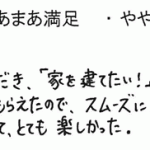 あまあ満足 ・やや
だき、「家を建てたい!」
もらえたので、スムーズに
て、とても 楽しかった。